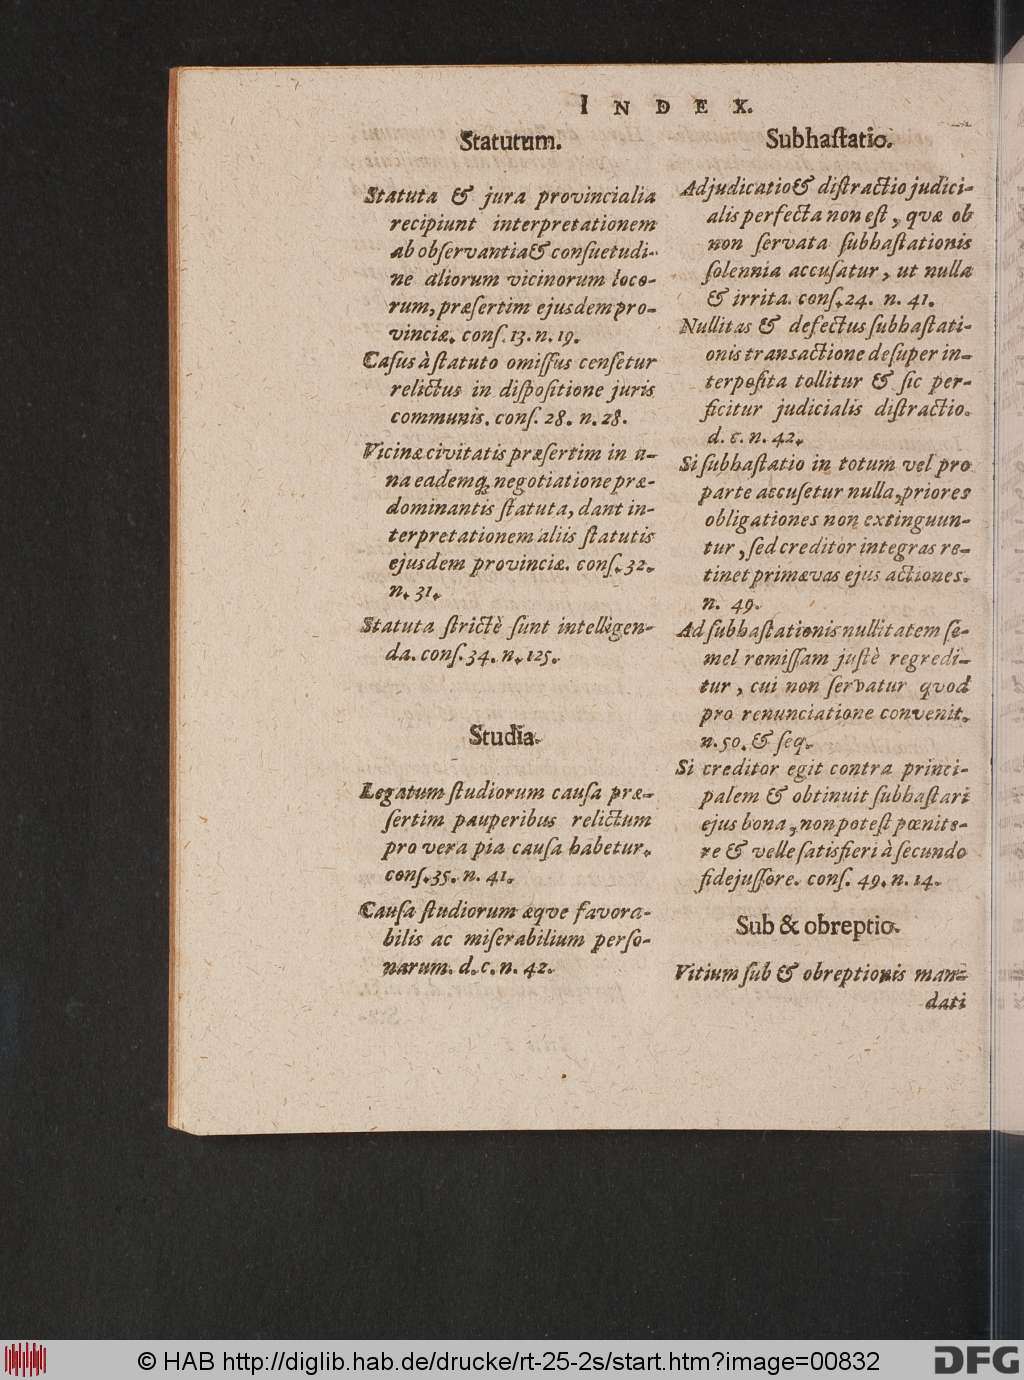 INDEX.
Statutum.
Statuta & jura provincialia
recipiunt interpretationem
ab obſervantia & conſuetudi-
ne aliorum vicinorum loco-
rum, præſertim ejusdem pro-
vinciæ. conſ. 13. n. 19.
Caſus à ſtatuto omiſſus cenſetur
relictus in diſpoſitione juris
communis. conſ. 28. n. 28.
Vicinæ civitatis præſertim in u-
na eademq; negotiatione præ-
dominantis ſtatuta, dant in-
terpretationem aliis ſtatutis
ejusdem provinciæ. conſ. 32.
n. 31.
Statuta ſtrictè ſunt intelligen-
da. conſ. 34. n. 125.
Studia.
Legatum ſtudiorum cauſa præ-
ſertim pauperibus relictum
pro vera pia cauſa habetur.
conſ. 35. n. 41.
Cauſa ſtudiorum æqve favora-
bilis ac miſerabilium perſo-
narum. d. c. n. 42.
Subhaſtatio.
Adjudicatio & diſtractio judici-
alis perfecta non eſt, qvæ ob
non ſervata ſubhaſtationis
ſolennia accuſatur, ut nulla
& irrita. conſ. 24. n. 41.
Nullitas & defectus ſubhaſtati-
onis transactione deſuper in-
terpoſita tollitur & ſic per-
ficitur judicialis diſtractio.
d. c. n. 42.
Si ſubhaſtatio in totum vel pro
parte accuſetur nulla, priores
obligationes non extinguun-
tur, ſed creditor integras re-
tinet primævas ejus actiones.
n. 49.
Ad ſubhaſtationis nullitatem ſe-
mel remiſſam juſtè regredi-
tur, cui non ſervatur qvod
pro renunciatione convenit.
n. 50. & ſeq.
Si creditor egit contra princi-
palem & obtinuit ſubhaſtari
ejus bona, non poteſt pœnite-
re & velle ſatisfieri à ſecundo
fidejuſſore. conſ. 49. n. 14.
Sub & obreptio.
Vitium ſub & obreptionis man-
dati
© HAB http://diglib.hab.de/drucke/rt-25-2s/start.htm?image=00832
DFG